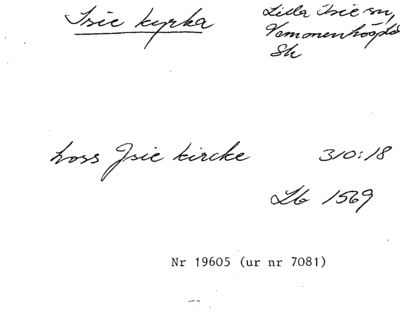 Isie kyrka
Lilla Isie sn,
Vemmenhögs
Sk
hoss Jsie kircke 310:18
Lb 1569
Nr 19605 (ur nr 7081)